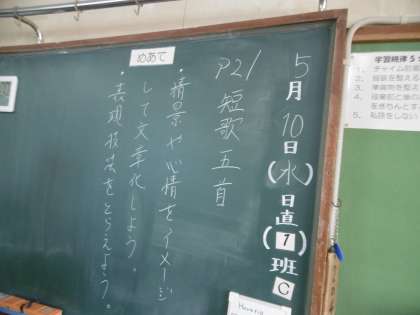 5月10日(水)日直(1班)C
P21 短歌五首
めあて
・情景や心情をイメージ
して文章化しよう。
・表現技法をとらえよう。
学習規律5
1. チャイム
2.
3.
4.
5. 私語をしない